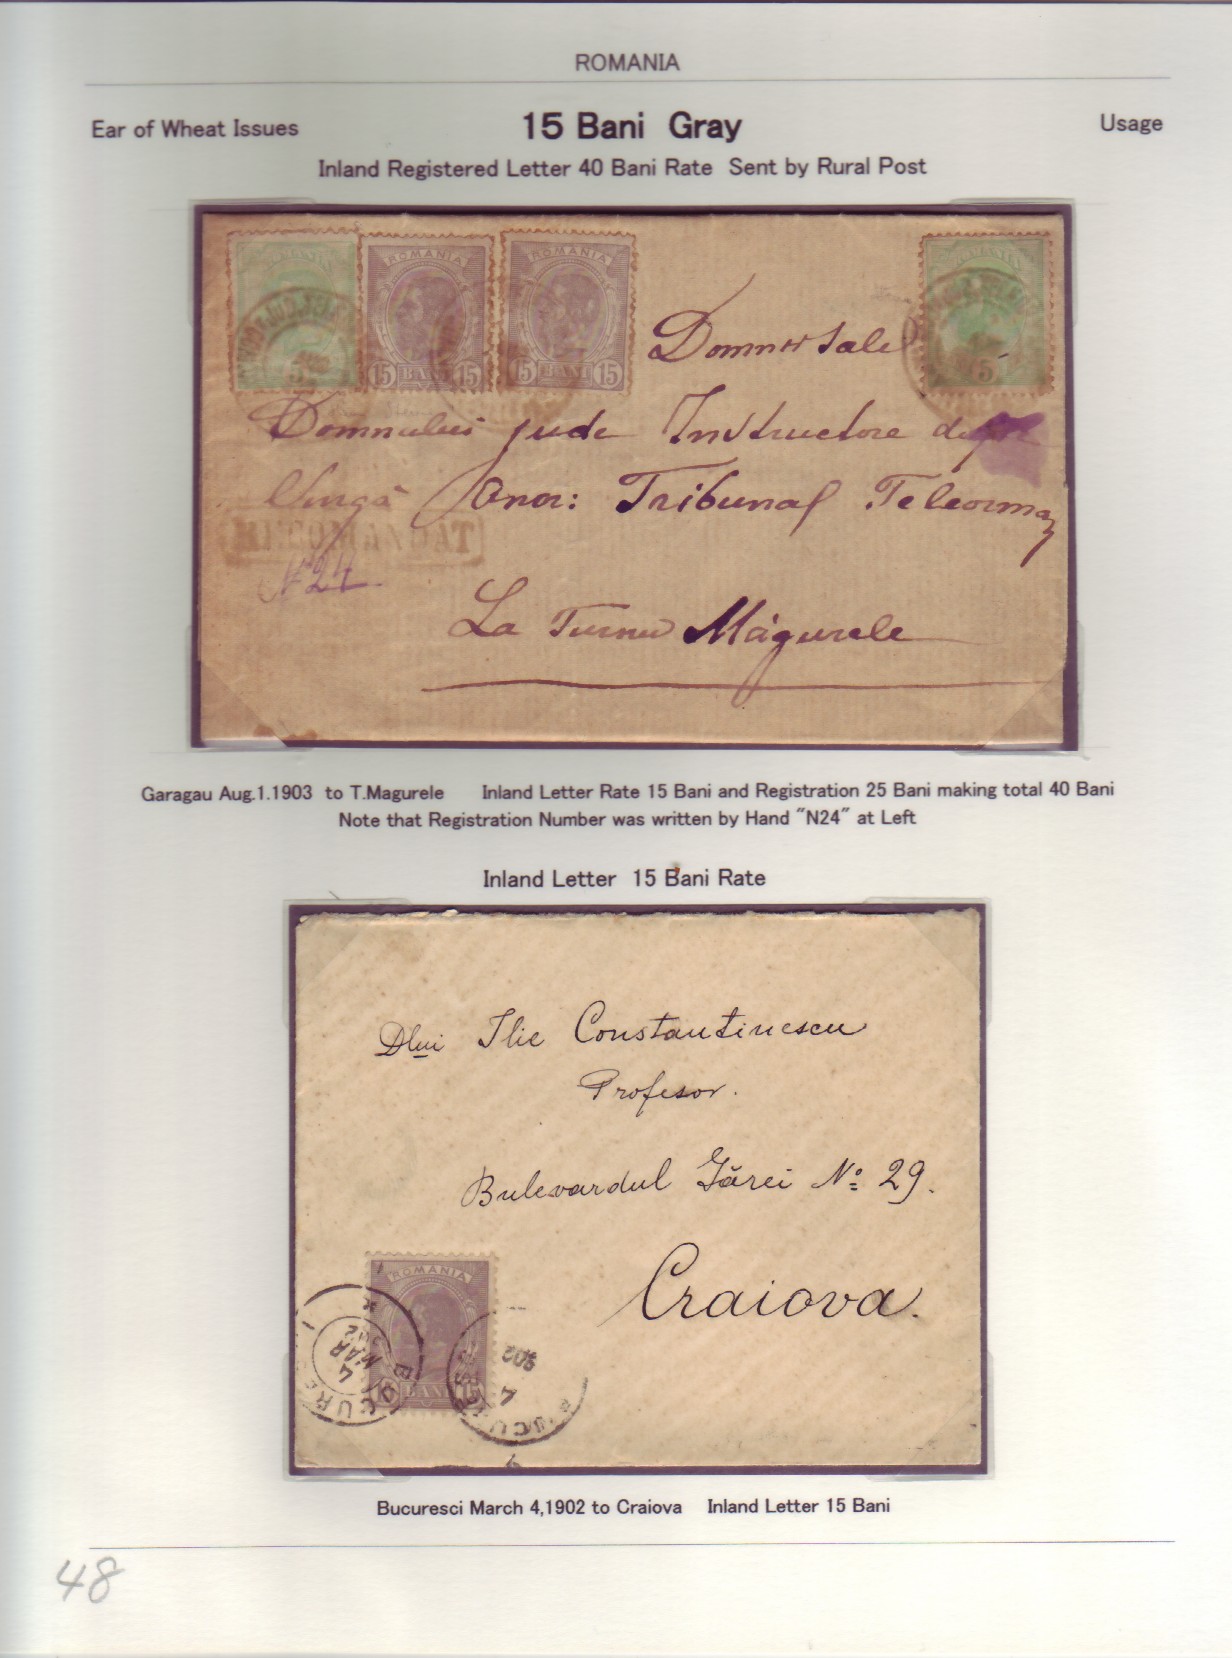 ROMANIA
Ear of Wheat Issues 15 Bani Gray Usage
Inland Registered Letter 40 Bani Rate Sent by Rural Post
ROMANIA ROMANIA
15 BANI 15 15 BANI 15 5
Domniei Sale
Domnului jude Instructore
Lângă Onor: Tribunal Teleorman
RECOMANDAT
N24
La Turnu Măgurele
Garagau Aug.1.1903 to T.Magurele Inland Letter Rate 15 Bani and Registration 25 Bani making total 40 Bani
Note that Registration Number was written by Hand "N24" at Left
Inland Letter 15 Bani Rate
Dlui Ilie Constantinescu
Profesor.
Bulevardul Gărei No: 29.
Craiova.
ROMANIA
BANI 15
4 MAR 902
4 902
Bucuresci March 4,1902 to Craiova Inland Letter 15 Bani
48